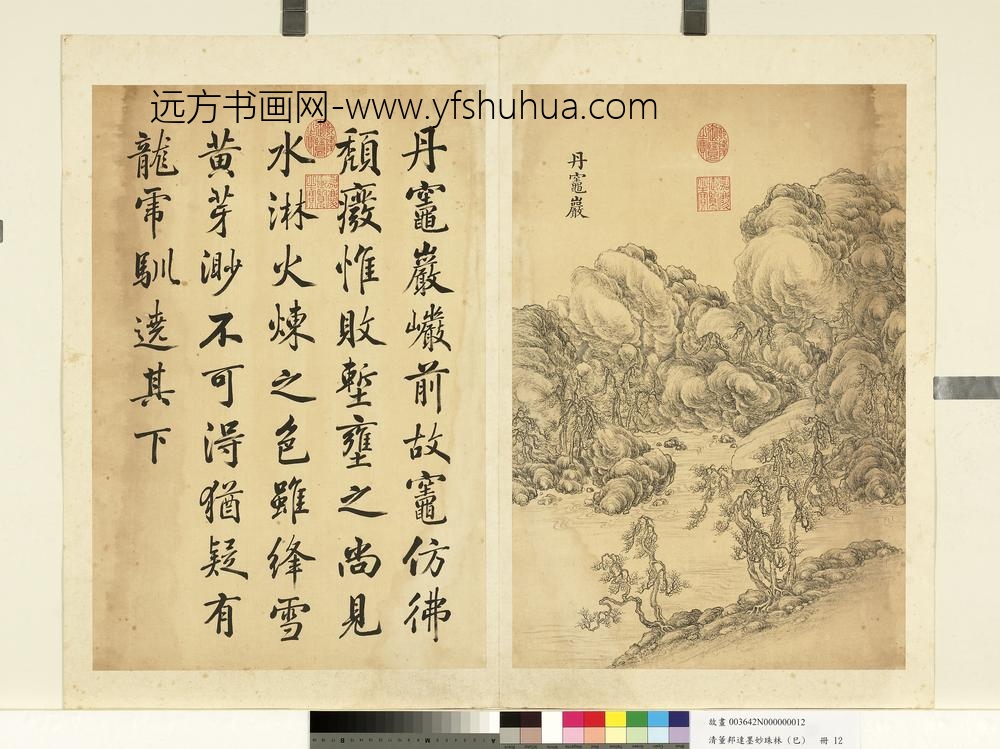 远方书画网-www.yfshuhua.com
丹竈巖
丹竈巖巗前故竈仿彿
頽癈惟敗塹壅之尚見
水淋火煉之色雖絳雪
黃芽渺不可得猶疑有
龍虎馴遶其下
故畫 003642N000000012
清董邦達墨妙珠林（巳） 冊 12